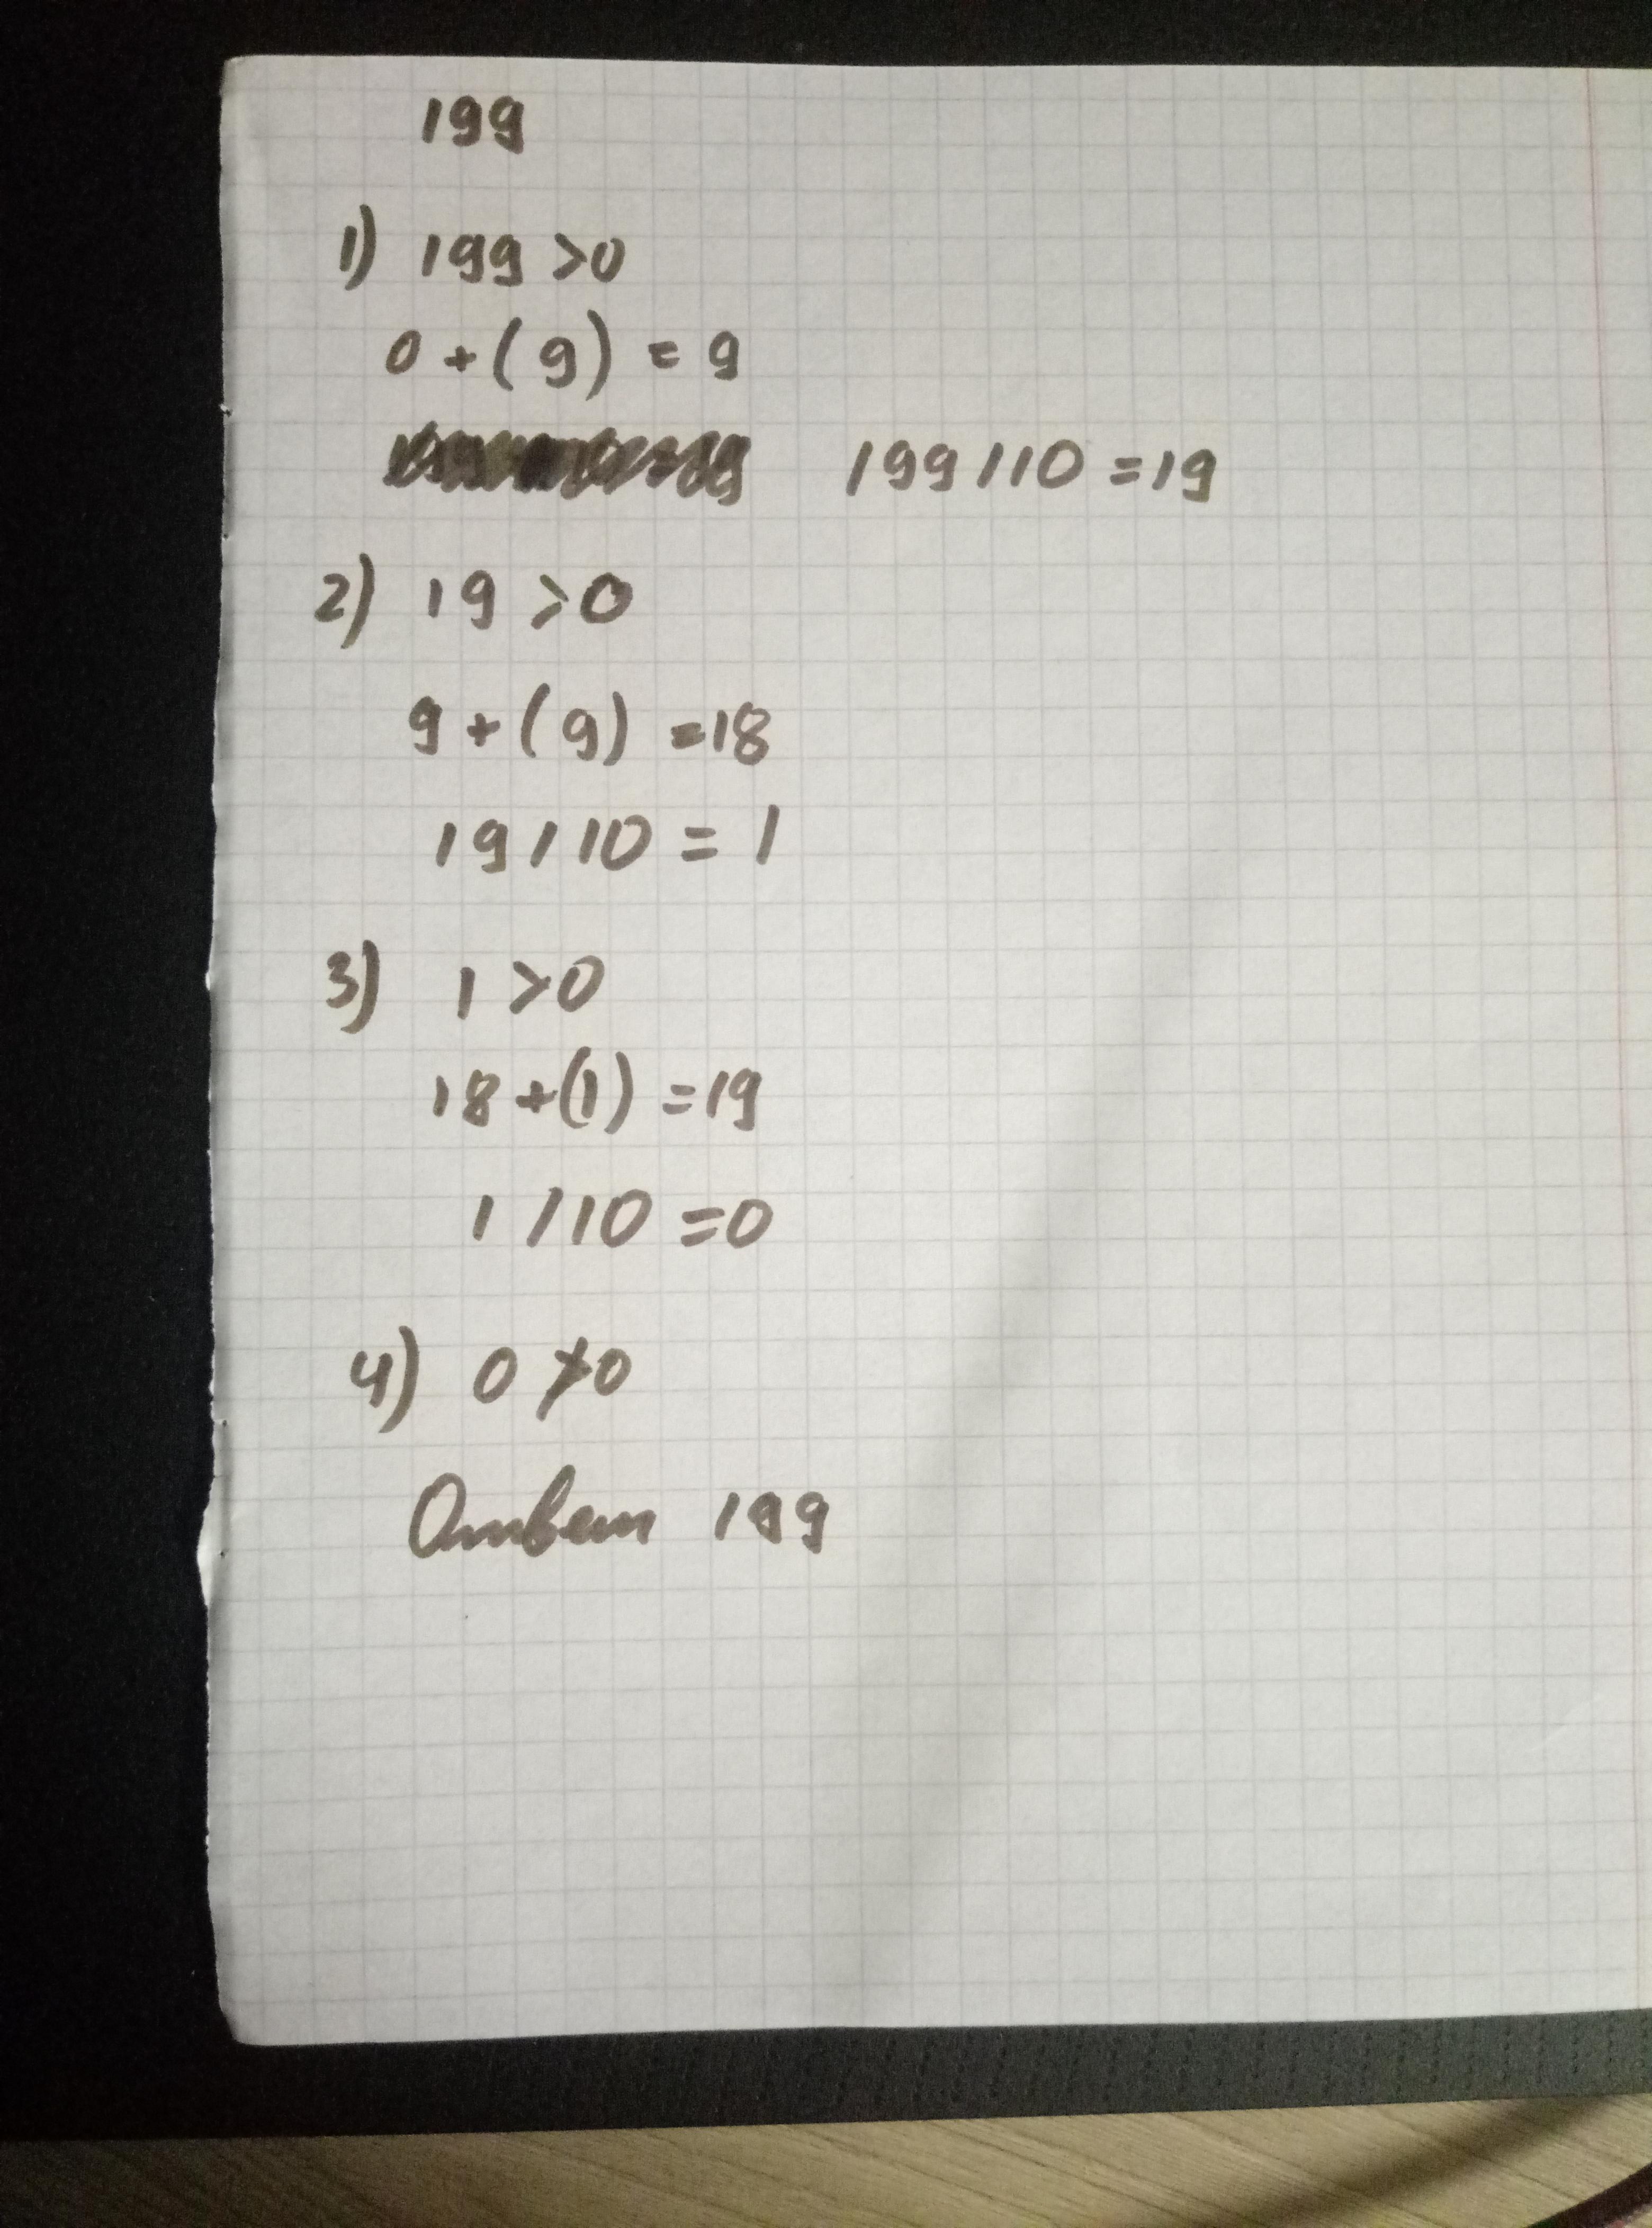 199
1) 199 >0
0 + (9) = 9
199 / 10 = 19
2) 19 >0
9 + (9) =18
19 / 10 = 1
3) 1 >0
18 +(1) =19
1 / 10 =0
4) 0 ≯0
Ответ 199